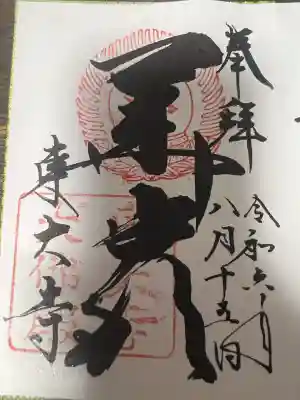 奉拝
令和六年
八月十五日
華厳
東大寺